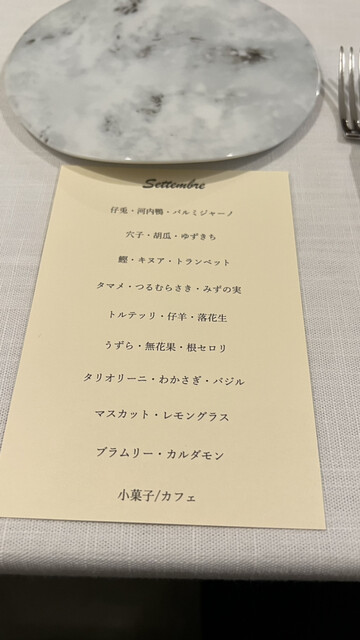 Settembre
仔兎・河内鴨・パルミジャーノ
穴子・胡瓜・ゆずきち
鰹・キヌア・トランペット
タマメ・つるむらさき・みずの実
トルテッリ・仔羊・落花生
うずら・無花果・根セロリ
タリオリーニ・わかさぎ・バジル
マスカット・レモングラス
ブラムリー・カルダモン
小菓子/カフェ